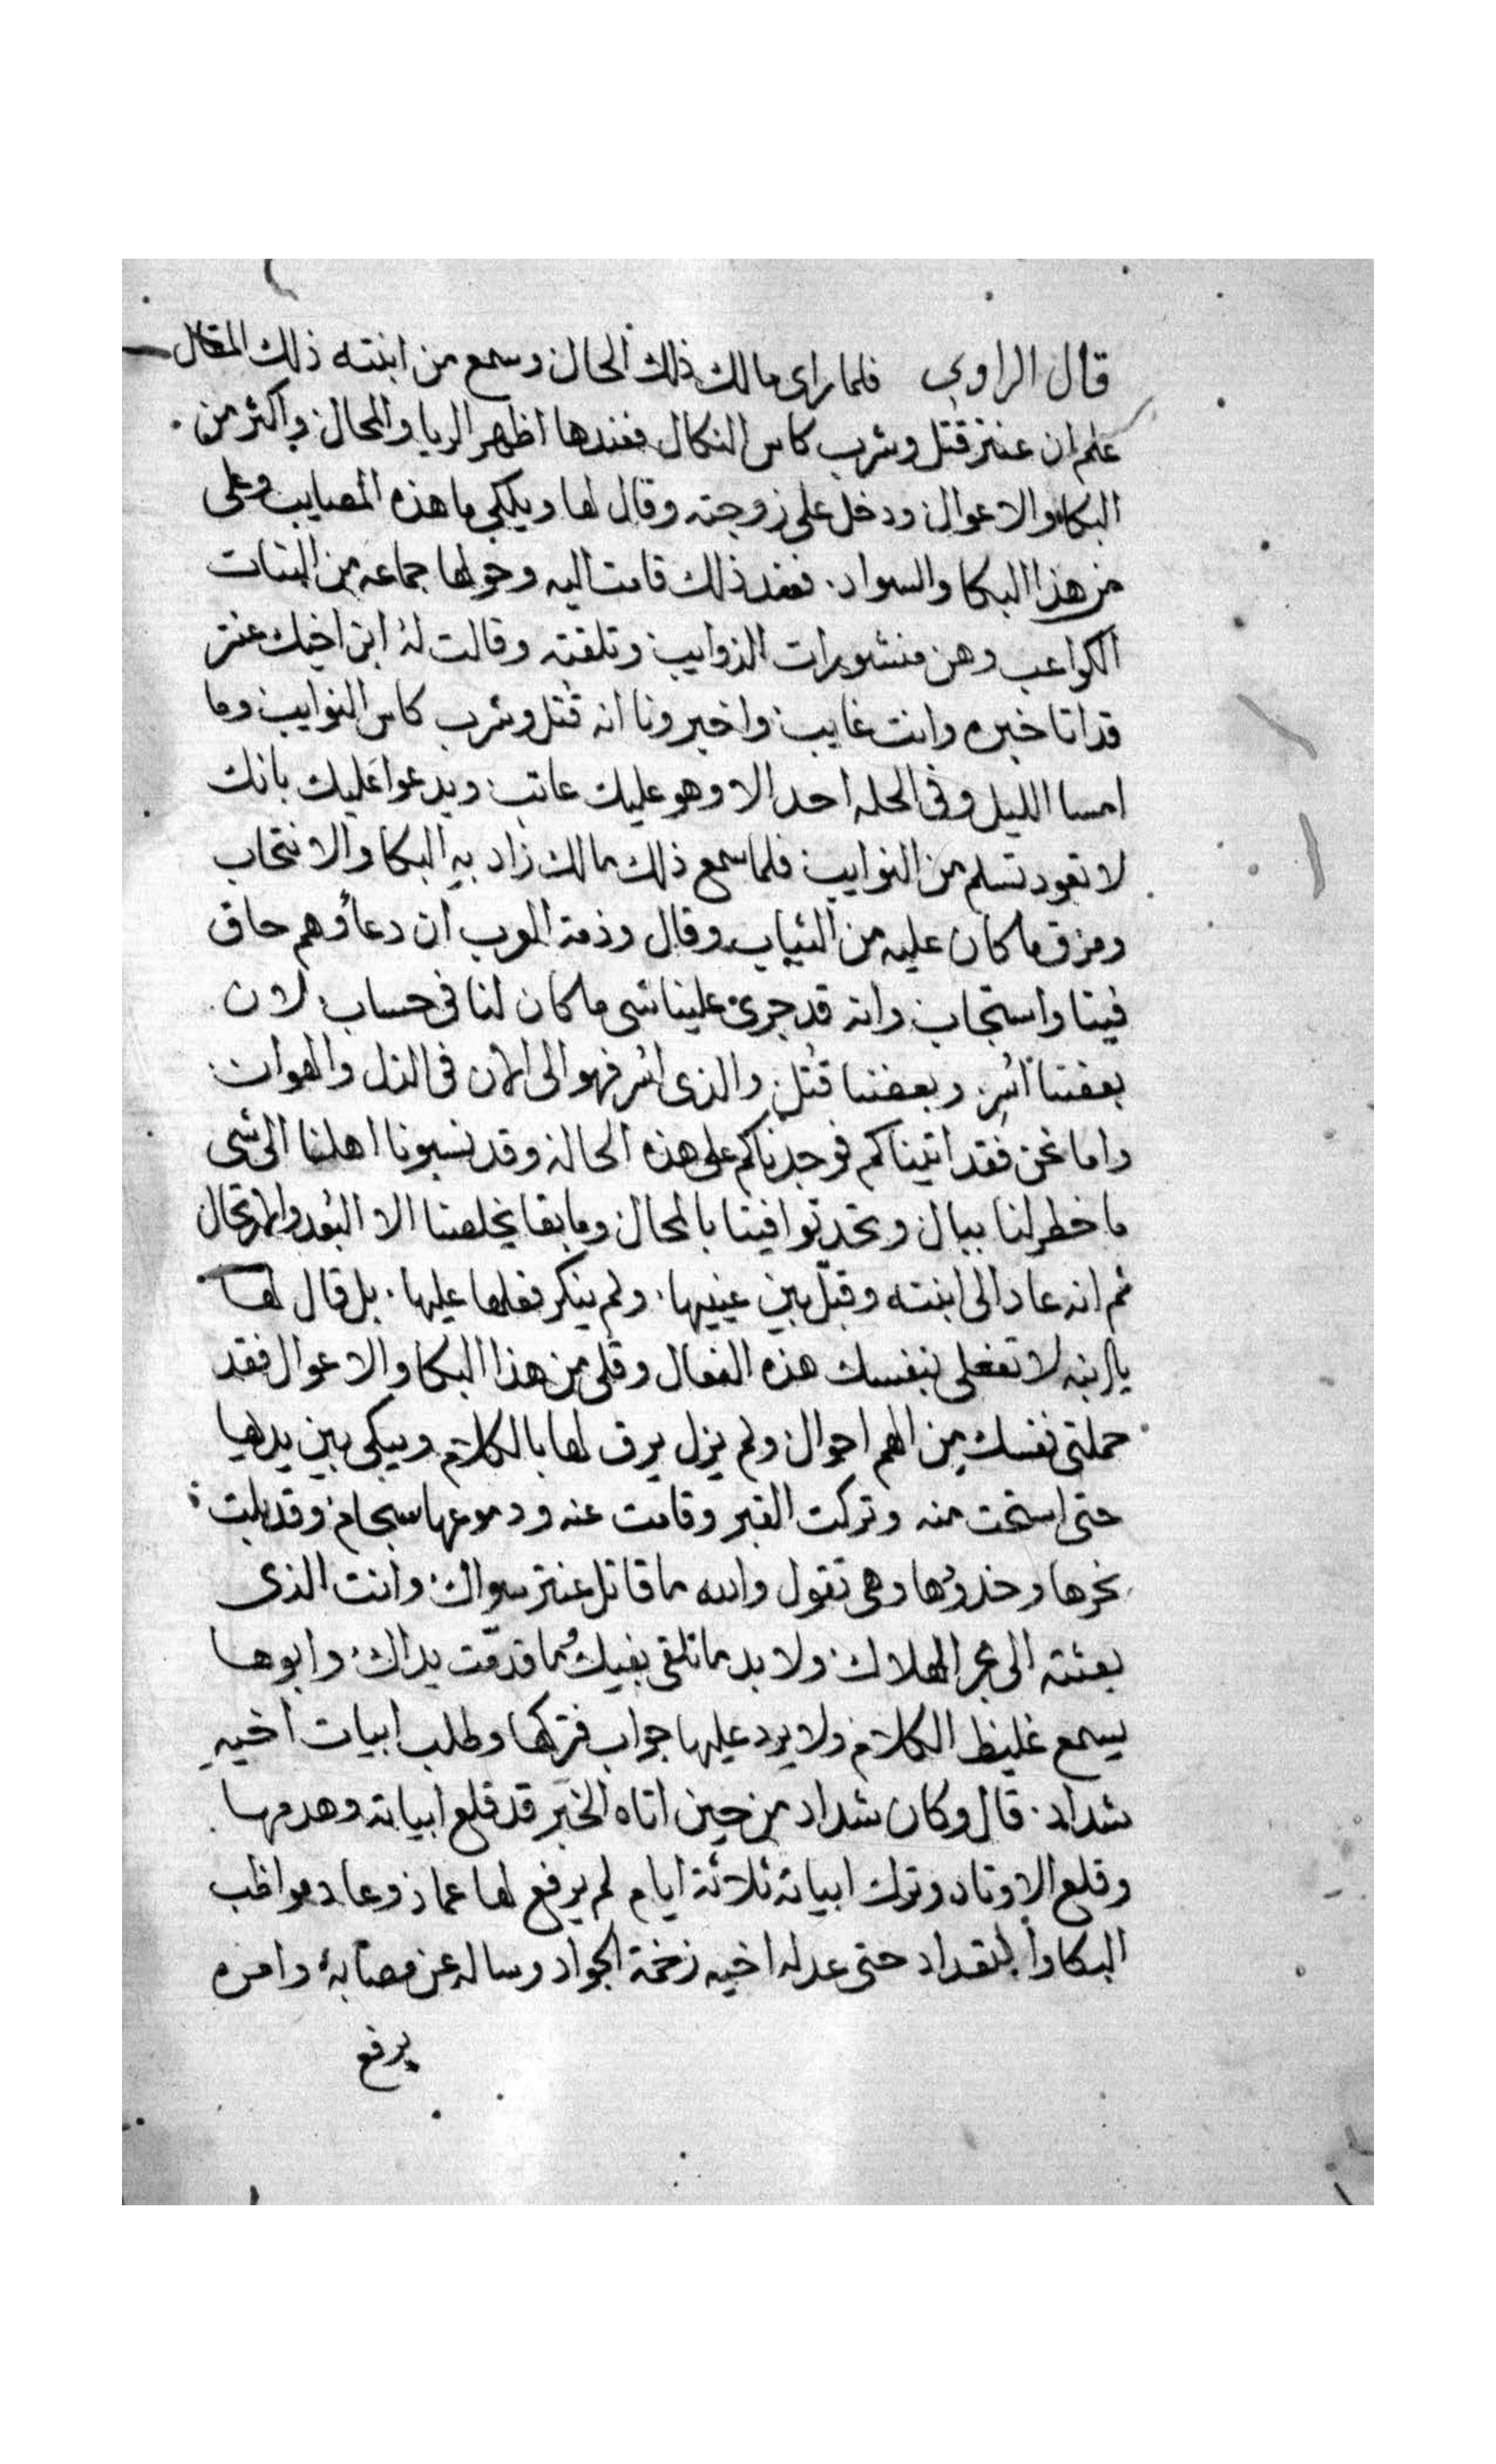 قال الراوي فلما راى مالك ذلك الحال وسمع من ابنته ذلك المقال
علم ان عنتر قتل وشرب كاس النكال فعندها اظهر الريا والمحال واكثر من
البكا والاعوال ودخل على زوجته وقال لها ويلكي ما هذه المصايب وعلى
من هذا البكا والسواد. فعند ذلك قامت اليه وحولها جماعه من البنات
الكواعب وهن منشورات الذوايب وتلقته وقالت لهُ ابن اخيك عنتر
قد اتا خبره وانت غايب واخبرونا انه قُتل وشرب كاس النوايب وما
امسا الليل وفى الحله احد الا وهو عليك عاتب ويدعوا عليك بانك
لا تعود تسلم من النوايب فلما سمع ذلك مالك زاد بهِ البكا والانتحاب
ومزق ما كان عليه من الثياب وقال وذمة العرب ان دعاؤهم حاق
فينا واستجاب وانه قد جرىَ علينا شى ما كان لنا فى حساب لان
بعضنا اُسِر وبعضنا قُتل والذى اُسر فهو الى الان فى الذل والهوان
واما نحن فقد اتيناكم فوجدناكم على هذه الحالة وقد نسبونا اهلنا الى شى
ما خطر لنا ببال وتحدثوا فينا بالمحال وما بقا يخلصنا الا البُعد والارتحال
ثم انه عاد الى ابنته وقبّل بين عينيها. ولم ينكر فعلها عليها. بل قال لها
يا ابنه لا تفعلى بنفسك هذه الفعال وقلى من هذا البكا والاعوال فقد
حملتى نفسك من الهم احوال ولم يزل يرق لها بالكلام ويبكى بين يديها
حتى استحت منه وتركت القبر وقامت عنه ودموعها سجام وقد بلت
نحرها وخدودها وهى تقول والله ما قاتل عنتر سواك وانت الذى
بعثته الى بحر الهلاك ولا بد ما تلقى بغيك وما قدمّت يداك وابوها
يسمع غليظ الكلام ولا يرد عليها جواب فتركها وطلب ابيات اخيهِ
شداد. قال وكان شداد من حين اتاه الخبَر قد قلع ابياته وهدمها
وقلع الاوتاد وترك ابياته ثلاثة ايام لم يرفع لها عماد وعاد مواظب
البكا والتعداد حتى عدله اخيه زخمة الجواد وساله عن مصابهُ وامره
يرفع